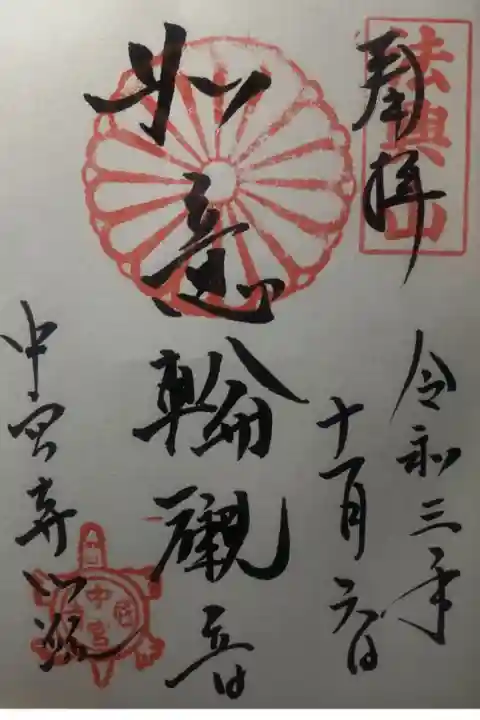 法興山
奉拝
令和三年
十一月六日
如意輪觀音
中宮寺門跡
中宮